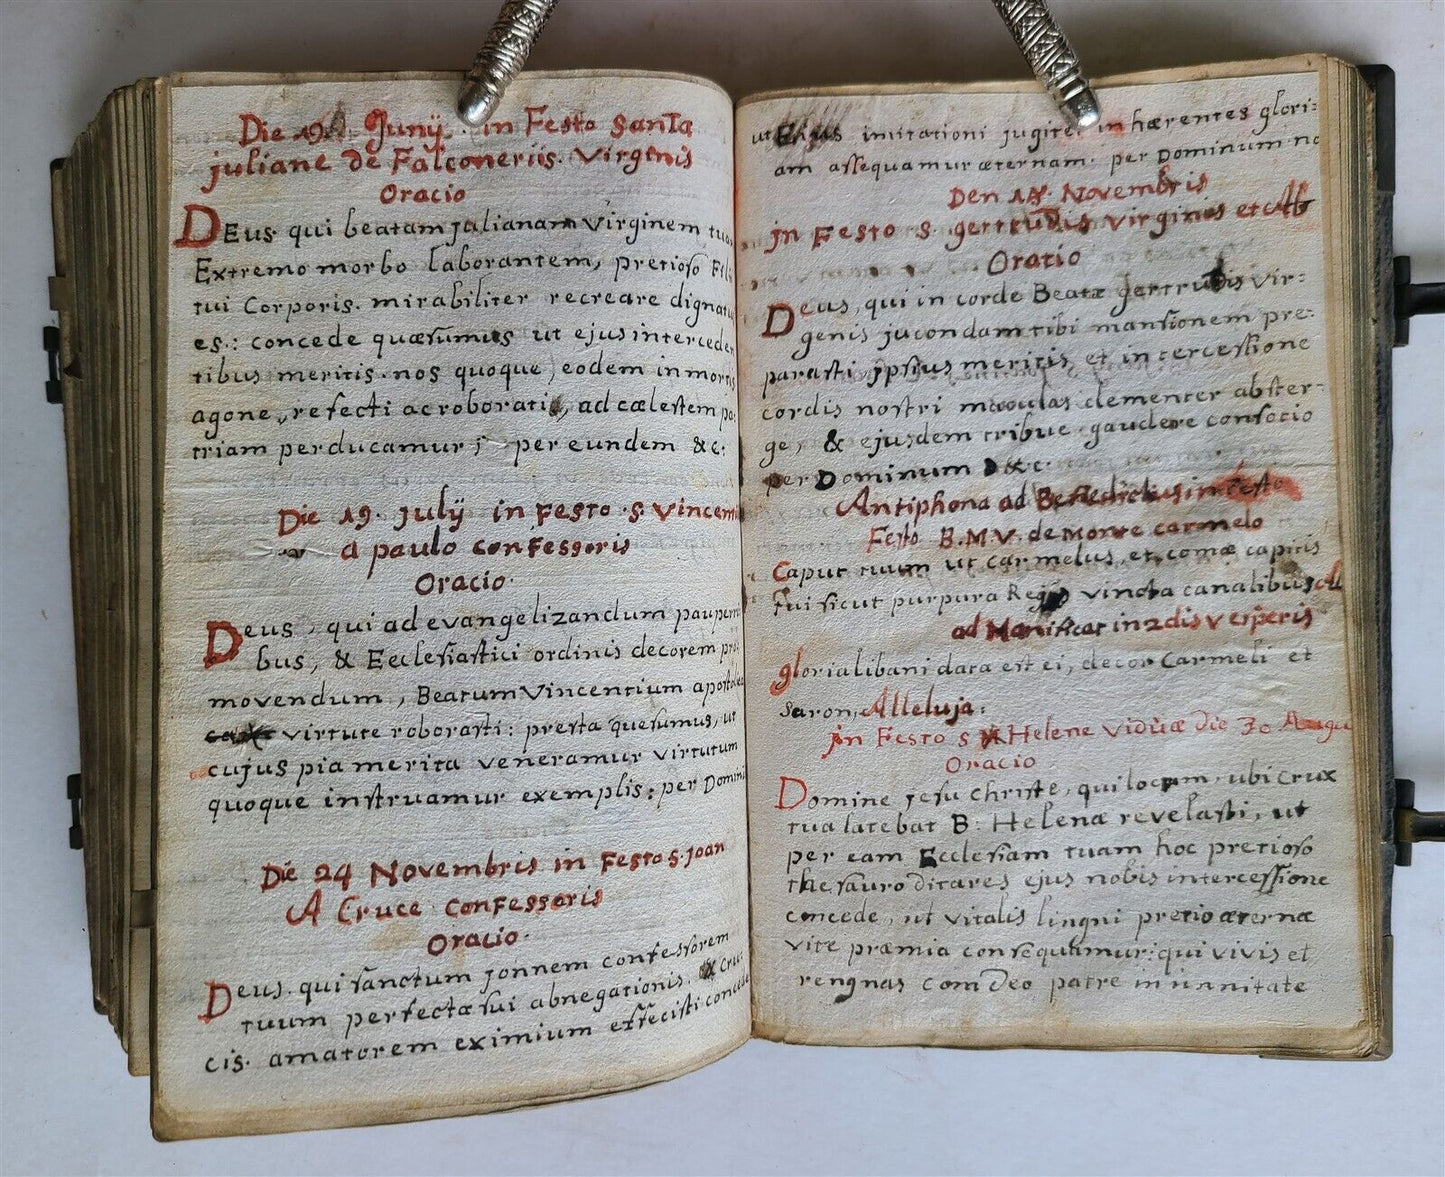 Die 19. Junÿ. in Festo SanTa
juliane de Falconeriis. Virginis
Oracio
DEus qui beatam julianam Virginem tua
Extremo morbo laborantem, pretioso Fil
tui Corporis. mirabiliter recreare dignatu
es.: concede quæsumus ut ejus interceden
tibus meritis. nos quoque, eodem in mortis
agone, refecti ac roborati, ad cælestem pa
triam perducamur; per eundem &c:
Die 19. julÿ in festo S. Vincenti
a paulo confessoris
Oracio.
Deus, qui ad evangelizandum pauperi
bus, & Ecclesiastici ordinis decorem pro
movendum, Beatum Vincentium aposto
virtute roborasti: præsta quesumus, ut
cujus pia merita veneramur virtutum
quoque instruamur exemplis: per Domini
Die 24 Novembris in Festo S. Joan
A Cruce confessoris
Oracio.
Deus. qui sanctum jonnem confessorem
tuum perfectæ sui abnegationis. & Cru
cis. amatorem eximium effecisti conced
ut Ejus imitationi jugiter inhærentes glori:
am assequamur æternam. per Dominum no
Den 15. Novembris
jn Festo S. gertrudis Virginis et Ab
Oratio
Deus, qui in corde Beatæ gertrudis vir:
genis jucondam tibi mansionem pre:
parasti ÿpsius meritis et intercessione
cordis nostri maculas clementer abster:
ge, & ejusdem tribue gaudere consotio
per Dominum &c.
Antiphona ad Benedictus in festo
Festo B.M.V. de Monte carmelo
Caput tuum ut carmelus, et comæ capitis
tui sicut purpura Regis vincta canalibus All
ad Manificat in 2dis Vesperis
gloria libani data est ei, decor Carmeli et
saron, Alleluja:
jn Festo S Helene Viduæ Die 30 Augu
Oracio
Domine jesu christe, qui locum, ubi Crux
tua latebat B: Helenæ revelasti, ut
per eam Ecclesiam tuam hoc pretioso
thesauro ditares ejus nobis intercessione
concede, ut vitalis lingni pretio æternæ
vite præmia consequamur: qui vivis et
rengnas com Deo patre in unnitate